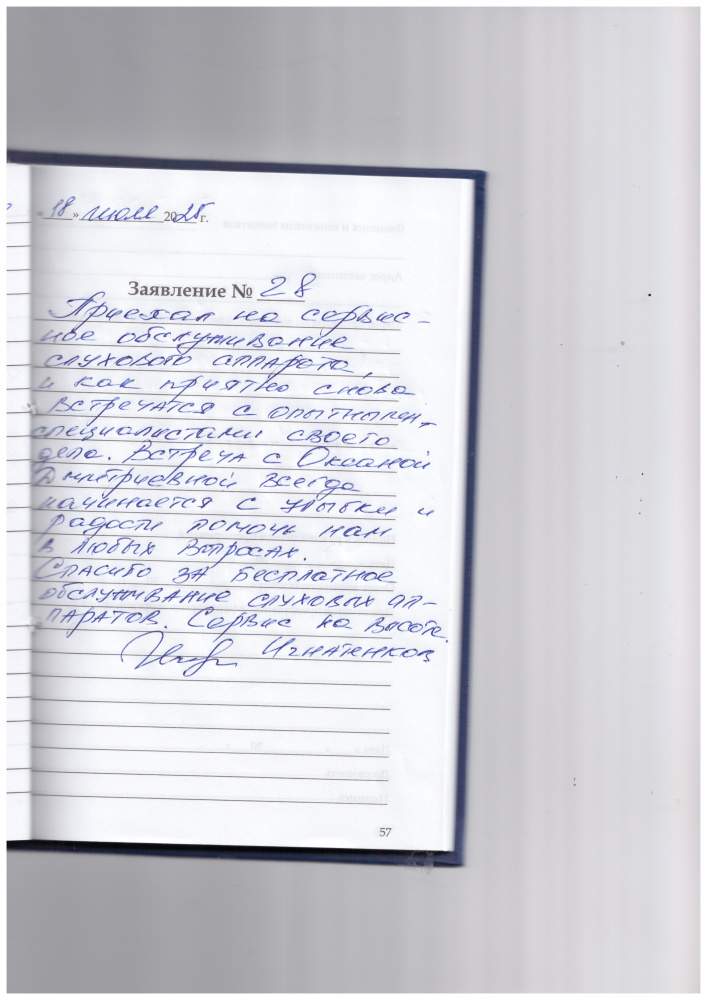 «18» июля 2025 г.
Заявление № 28
Приехал на сервис-
ное обслуживание
слухового аппарата,
и как приятно снова
встречатся с опытными
специалистами своего
дела. Встреча с Оксаной
Дмитриевной всегда
начинается с улыбки и
радости помочь нам
в любых вопросах.
Спасибо за бесплатное
обслуживание слуховых ап-
паратов. Сервис на высоте.
Игнатенков
57